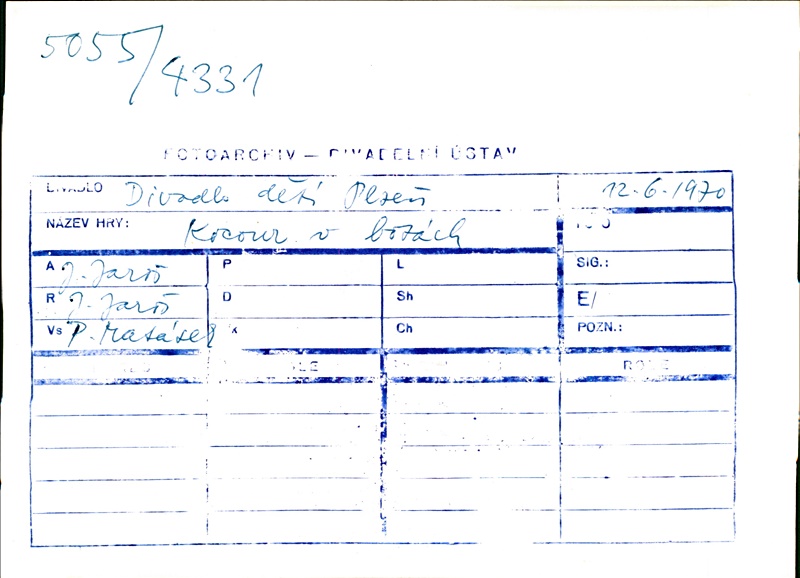 5055/4331
FOTOARCHIV — DIVADELNÍ ÚSTAV
DIVADLO Divadlo dětí Plzeň 12.6.1970
NÁZEV HRY: Kocour v botách FOTO
A J. Jaroš P L SIG.:
R J. Jaroš D Sh E/
Vs P. Matásek k Ch POZN.:
ROLE